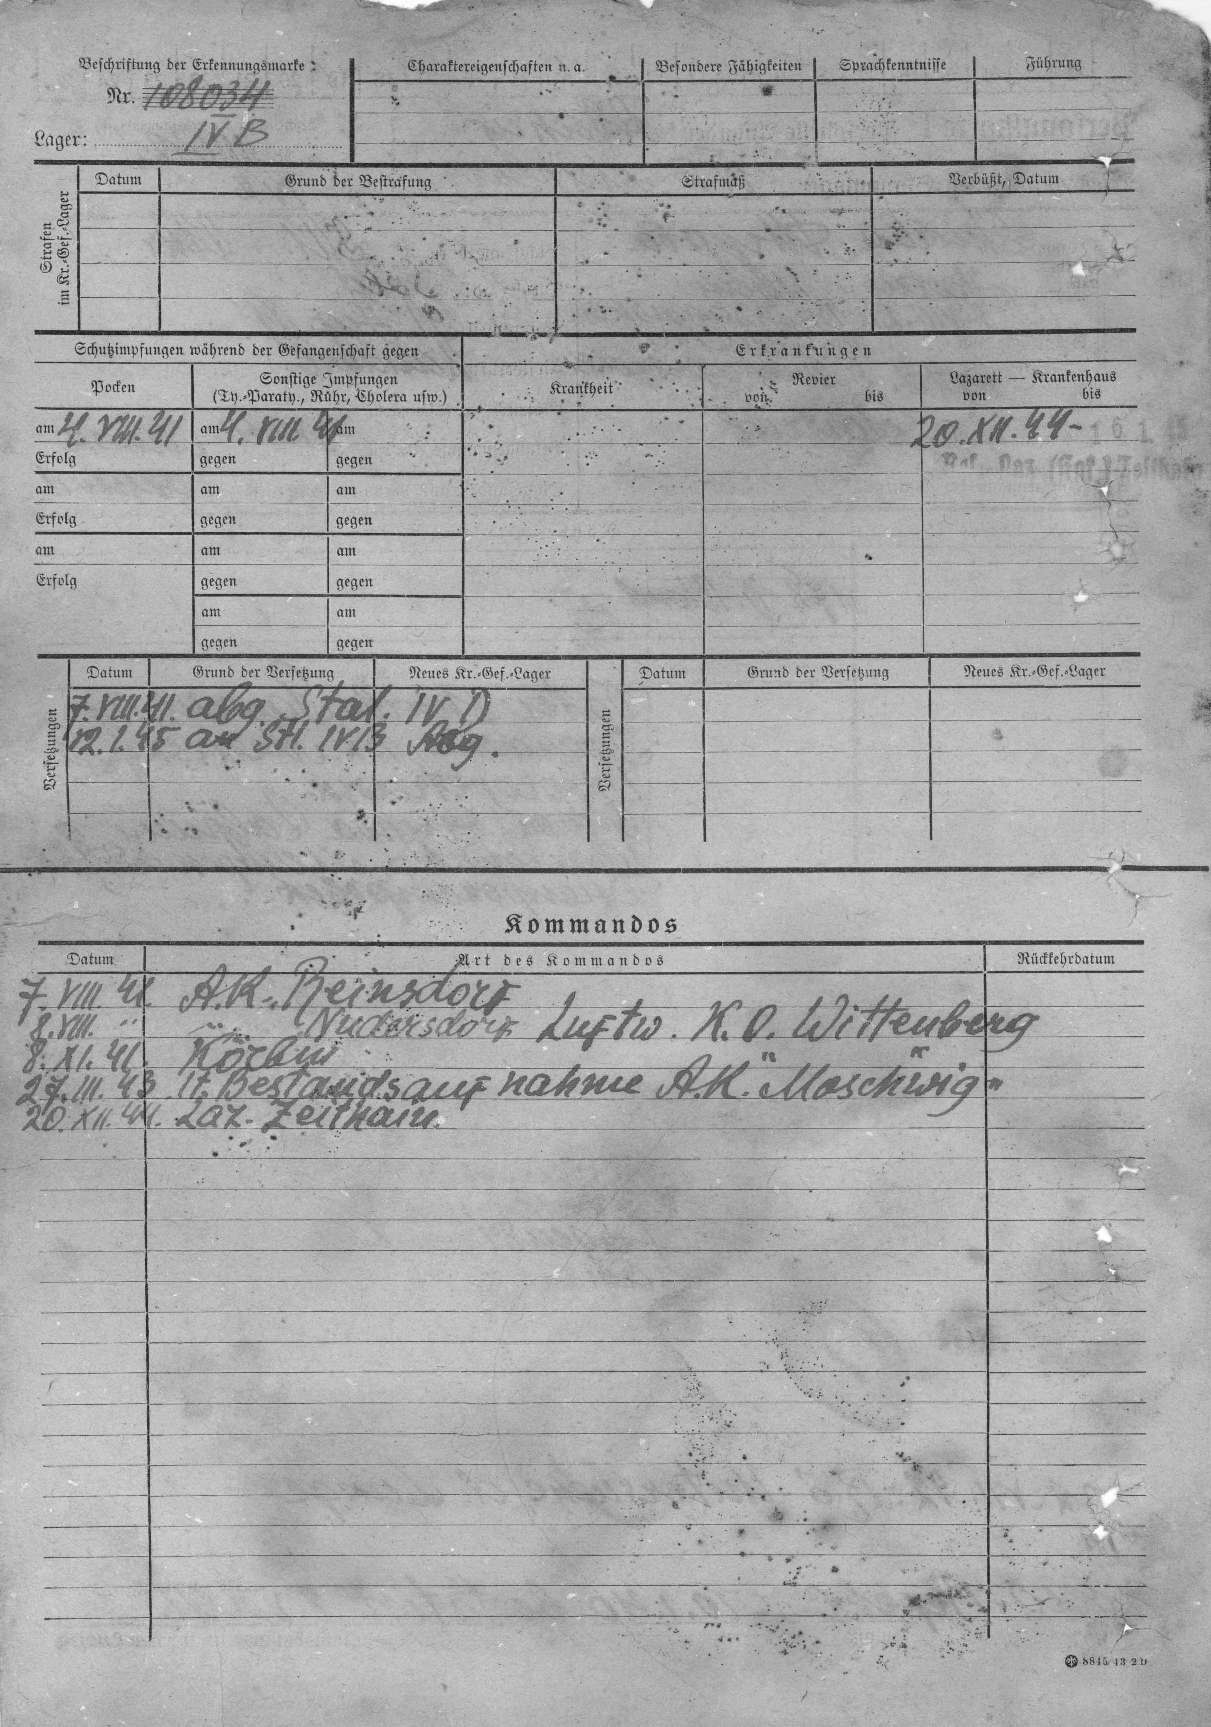 Beschriftung der Erkennungsmarke:
Nr. 108034
Lager: IV B
Charaktereigenschaften u. a.
Besondere Fähigkeiten
Sprachkenntnisse
Führung
Strafen im Kr.-Gef.-Lager
Datum Grund der Bestrafung Strafmaß Verbüßt, Datum
Schutzimpfungen während der Gefangenschaft gegen
Pocken
Sonstige Impfungen
(Ty.-Paraty., Ruhr, Cholera usw.)
am 4. VIII. 41 am 4. VIII 41 am
Erfolg gegen gegen
am am am
Erfolg gegen gegen
am am am
Erfolg gegen gegen
am am
gegen gegen
Erkrankungen
Krankheit
Revier
von bis
Lazarett — Krankenhaus
von bis
20. XII. 44-
Versetzungen
Datum Grund der Versetzung Neues Kr.-Gef.-Lager
7. VIII. 41. abg. Stal. IV D
12. 1. 45 an Stl. IV B Abg.
Versetzungen
Datum Grund der Versetzung Neues Kr.-Gef.-Lager
Kommandos
Datum Art des Kommandos Rückkehrdatum
7. VIII. 41. A.K. Reinsdorf
8. VIII. " " Nudersdorf Luftw. K. O. Wittenberg
8. XI. 41.
27. III. 43 lt. Bestandsaufnahme A.K. "Moschwig"
20. XII. 44. Laz. Zeithain.